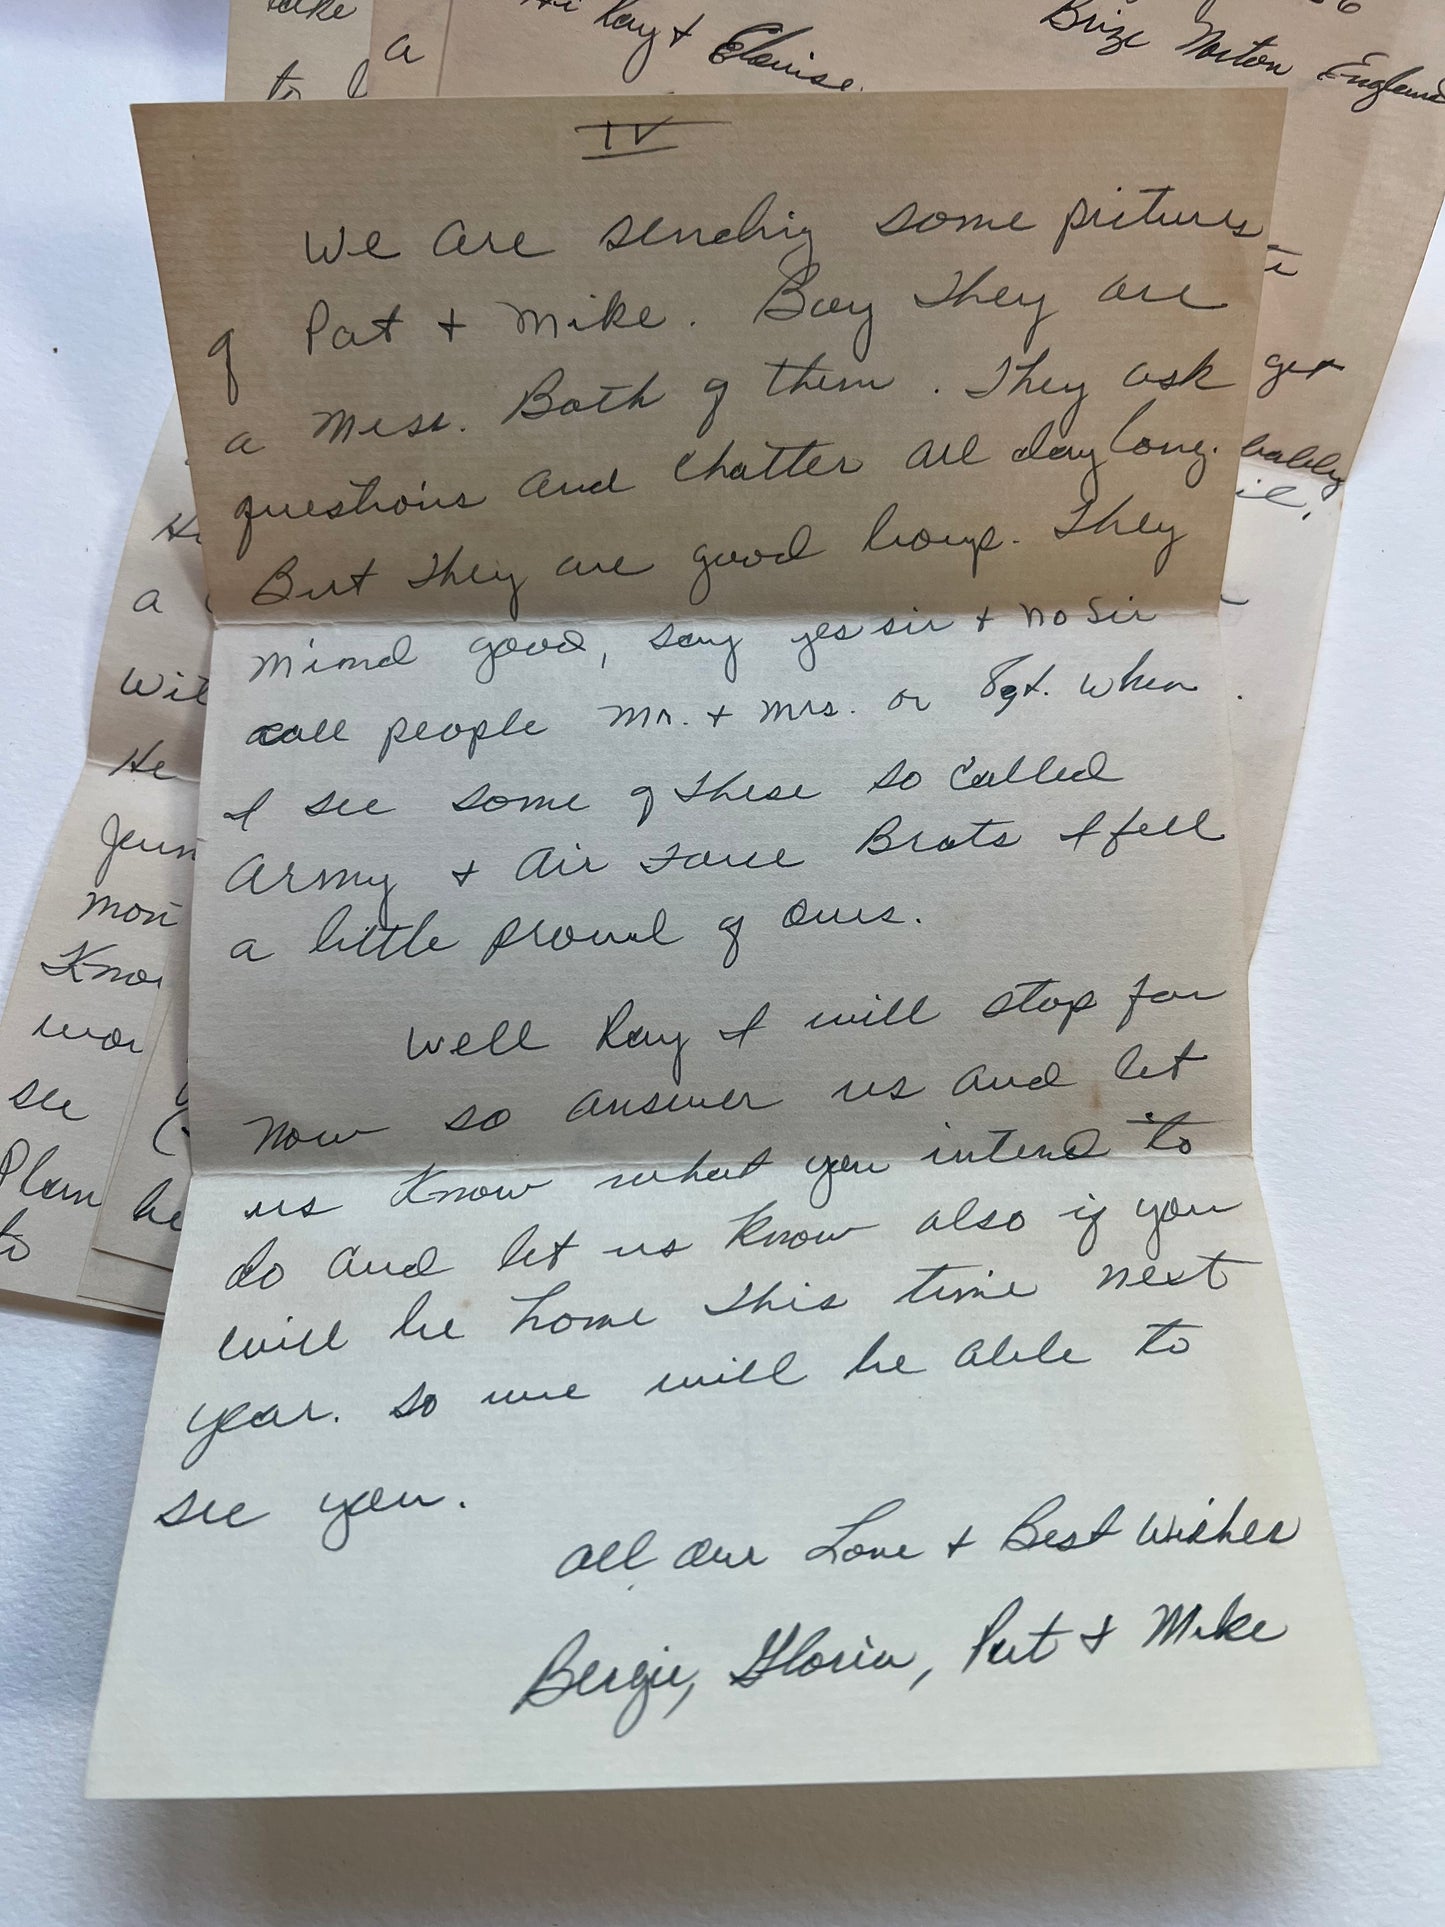 Hi Ray & Elouise.
Brize Norton England
IV
We are sending some pictures
of Pat + Mike. Boy They are
a mess. Both of them. They ask
questions and chatter all day long.
But They are good boys. They
mind good, say yes sir + no sir
call people Mr. + Mrs. or Sgt. when
I see some of these so called
Army + Air Force Brats I fell
a little proud of ours.
Well Ray I will stop for
now so answer us and let
us know what you intend to
do and let us know also if you
will be home This time next
year. so we will be able to
see you.
All our Love + Best Wishes
Bergie, Gloria, Pat + Mike
take
a
to
get
a
He
see
to
be